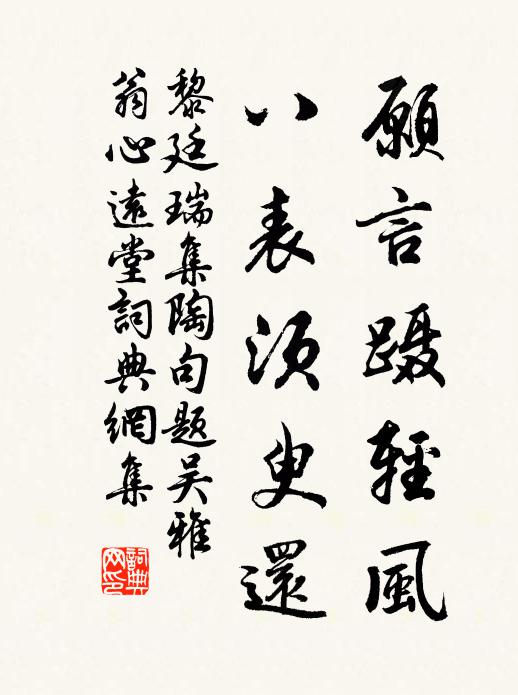 願言蹑輕風
八表須臾還
黎廷瑞集陶句題吴雅
翁心遠堂詞典網集
詞典网印